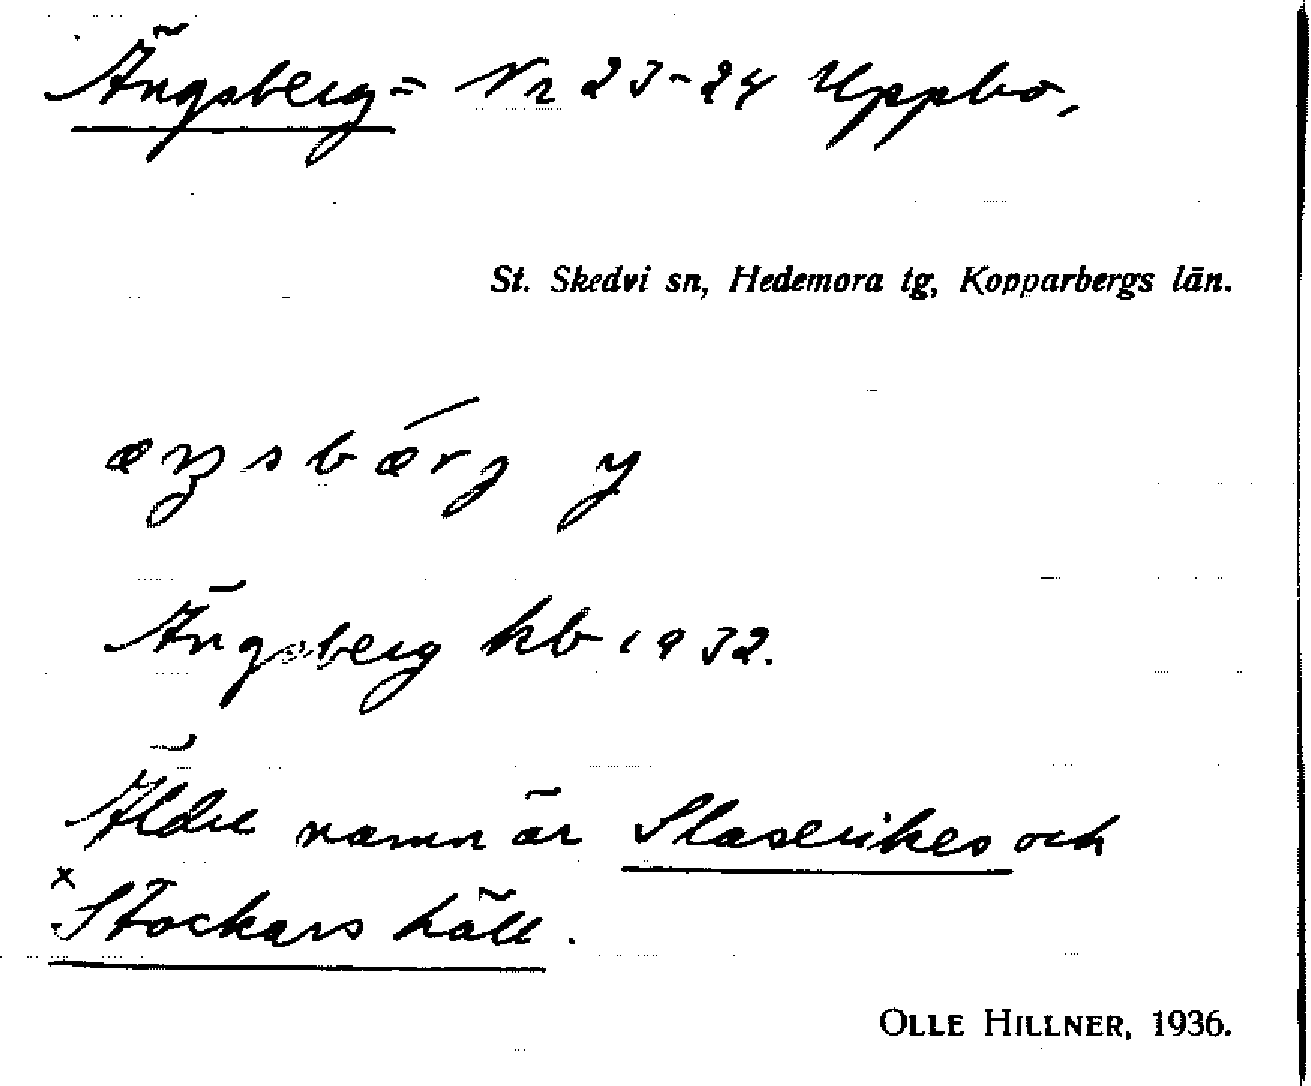 Ängsberg = Nr 23-24 Uppbo,
St. Skedvi sn, Hedemora tg, Kopparbergs län.
æŋsbærj y
Ängsberg kb 1932.
Äldre namn är Slaserikes och
x Stockars häll.
OLLE HILLNER, 1936.